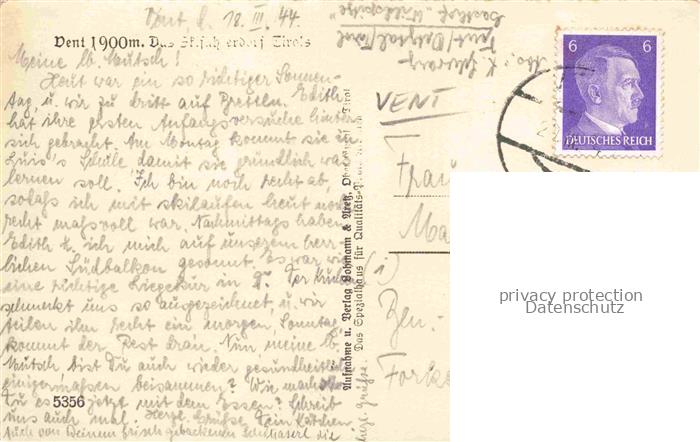 Vent, d. 18. III. 44
Vent 1900m. Das Skifahrerdorf Tirols
Meine lb. Mutsch!
Heut war ein so richtiger Sonnen-
tag, u. wir zu dritt auf Bretteln. Edith
hat ihre ersten Anfangsversuche hinter
sich gebracht. Am Montag kommt sie in
Luis's Schule damit sie gründlich was
lernen soll. Ich bin noch recht ab,
sodass ich mit skilaufen heut noch
recht massvoll war. Nachmittags haben
Edith u. ich mich auf unserem herr-
lichen Südbalkon gesonnt. Es war wie
eine richtige Liegekur in
Der Kuchen
schmeckt uns so ausgezeichnet, u. wir
teilen ihn recht ein morgen, Sonntag
kommt der Rest dran. Nun meine lb.
Mutsch, bist Du auch wieder gesundheitlich
einigermassen beisammen? Wie machst
Du es jetzt mit dem Essen? Schreib
uns auch mal. Herzl. Grüsse Dein Kätchen
Auch von Deinem frisch gebackenen die
herzl. Grüsse.
5356
Aufnahme u. Verlag Lohmann & Uretz, Obergurgl, Tirol
Das Spezialhaus für Qualitäts-
Abs. K.
Vent/Oetztal/Tirol
Gasthof „Wildspitze"
VENT
6 6
DEUTSCHES REICH
Frau
Ma
(1)
Ben.-
privacy protection
Datenschutz